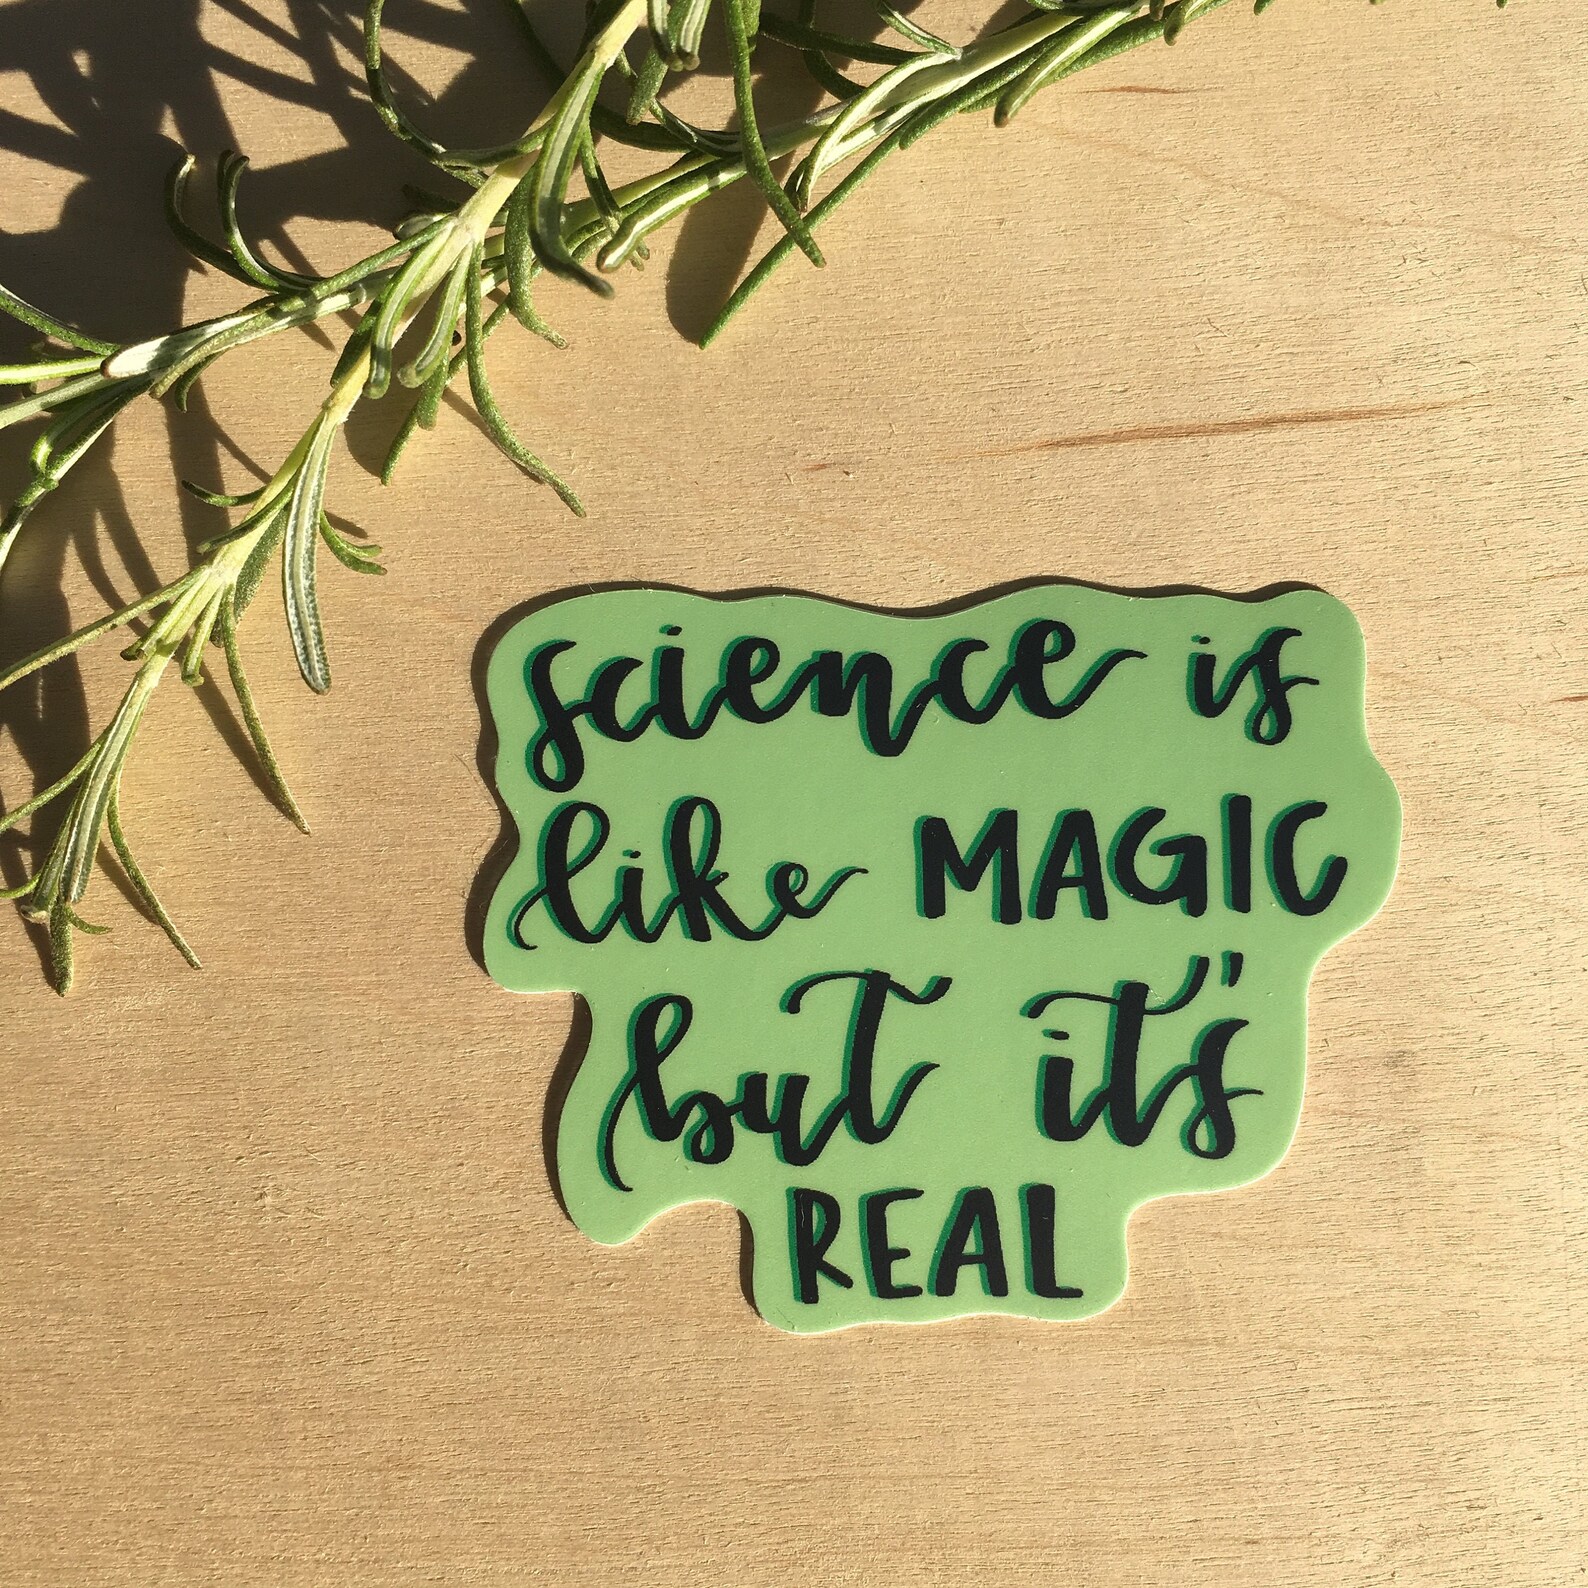 science is
like MAGIC
but it's
REAL